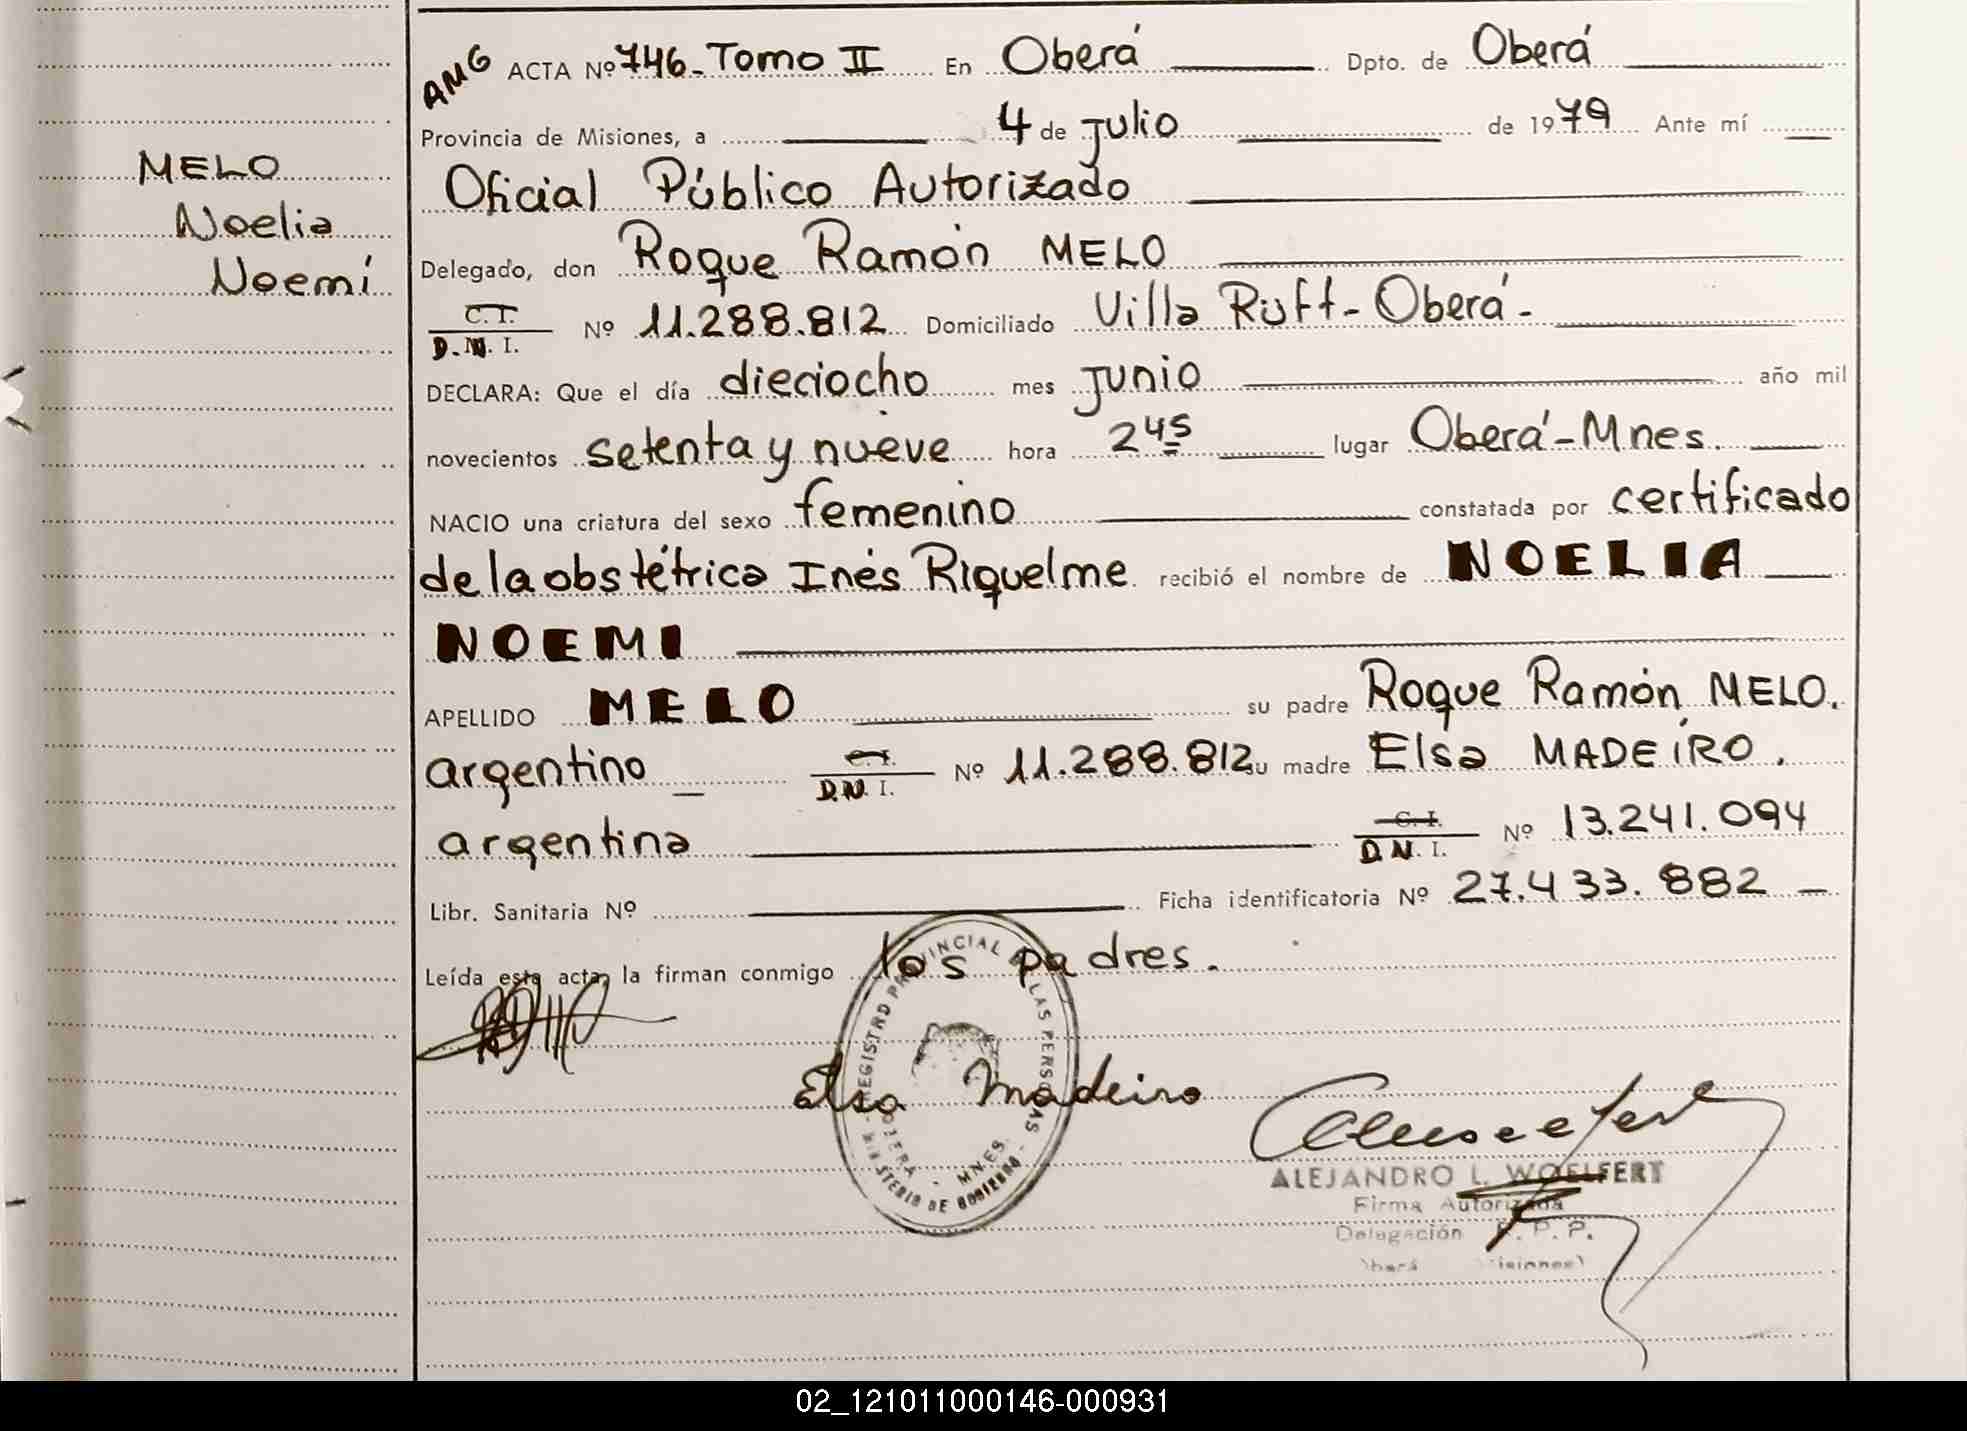 AMG ACTA Nº 746 - Tomo II En Oberá Dpto. de Oberá
Provincia de Misiones, a 4 de Julio de 1979 Ante mí
MELO
Oficial Público Autorizado
Noelia
Delegado, don Roque Ramón MELO
Noemí
C.I. D.N.I. Nº 11.288.812 Domiciliado Villa Ruff - Oberá -
DECLARA: Que el día dieciocho mes Junio año mil
novecientos setenta y nueve hora 2 45 lugar Oberá - Mnes.
NACIO una criatura del sexo femenino constatada por certificado
de la obstétrica Inés Riquelme. recibió el nombre de NOELIA
NOEMI
APELLIDO MELO su padre Roque Ramón MELO.
argentino C.I. D.N.I. Nº 11.288.812 su madre Elsa MADEIRO.
argentina C.I. D.N.I. Nº 13.241.094
Libr. Sanitaria Nº Ficha identificatoria Nº 27.433.882 -
Leída esta acta, la firman conmigo los padres.
REGISTRO PROVINCIAL DE LAS PERSONAS
OBERA - MNES.
MINISTERIO DE GOBIERNO
Elsa Madeiro
ALEJANDRO L. WOELFERT
Firma Autorizada
Delegación R. P. P.
Oberá (Misiones)
02_121011000146-000931